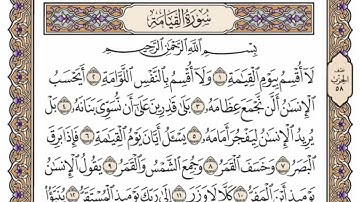 سُورَةُ الْقِيَامَةِ
بِسْمِ اللَّهِ الرَّحْمَٰنِ الرَّحِيمِ
لَا أُقْسِمُ بِيَوْمِ الْقِيَامَةِ ١ وَلَا أُقْسِمُ بِالنَّفْسِ اللَّوَّامَةِ ٢ أَيَحْسَبُ
الْإِنسَانُ أَلَّن نَّجْمَعَ عِظَامَهُ ٣ بَلَىٰ قَادِرِينَ عَلَىٰ أَن نُّسَوِّيَ بَنَانَهُ ٤ بَلْ
يُرِيدُ الْإِنسَانُ لِيَفْجُرَ أَمَامَهُ ٥ يَسْأَلُ أَيَّانَ يَوْمُ الْقِيَامَةِ ٦ فَإِذَا بَرِقَ
الْبَصَرُ ٧ وَخَسَفَ الْقَمَرُ ٨ وَجُمِعَ الشَّمْسُ وَالْقَمَرُ ٩ يَقُولُ الْإِنسَانُ
يَوْمَئِذٍ أَيْنَ الْمَفَرُّ ١٠ كَلَّا لَا وَزَرَ ١١ إِلَىٰ رَبِّكَ يَوْمَئِذٍ الْمُسْتَقَرُّ ١٢ يُنَبَّؤُا
نصف
الحزب
٥٨